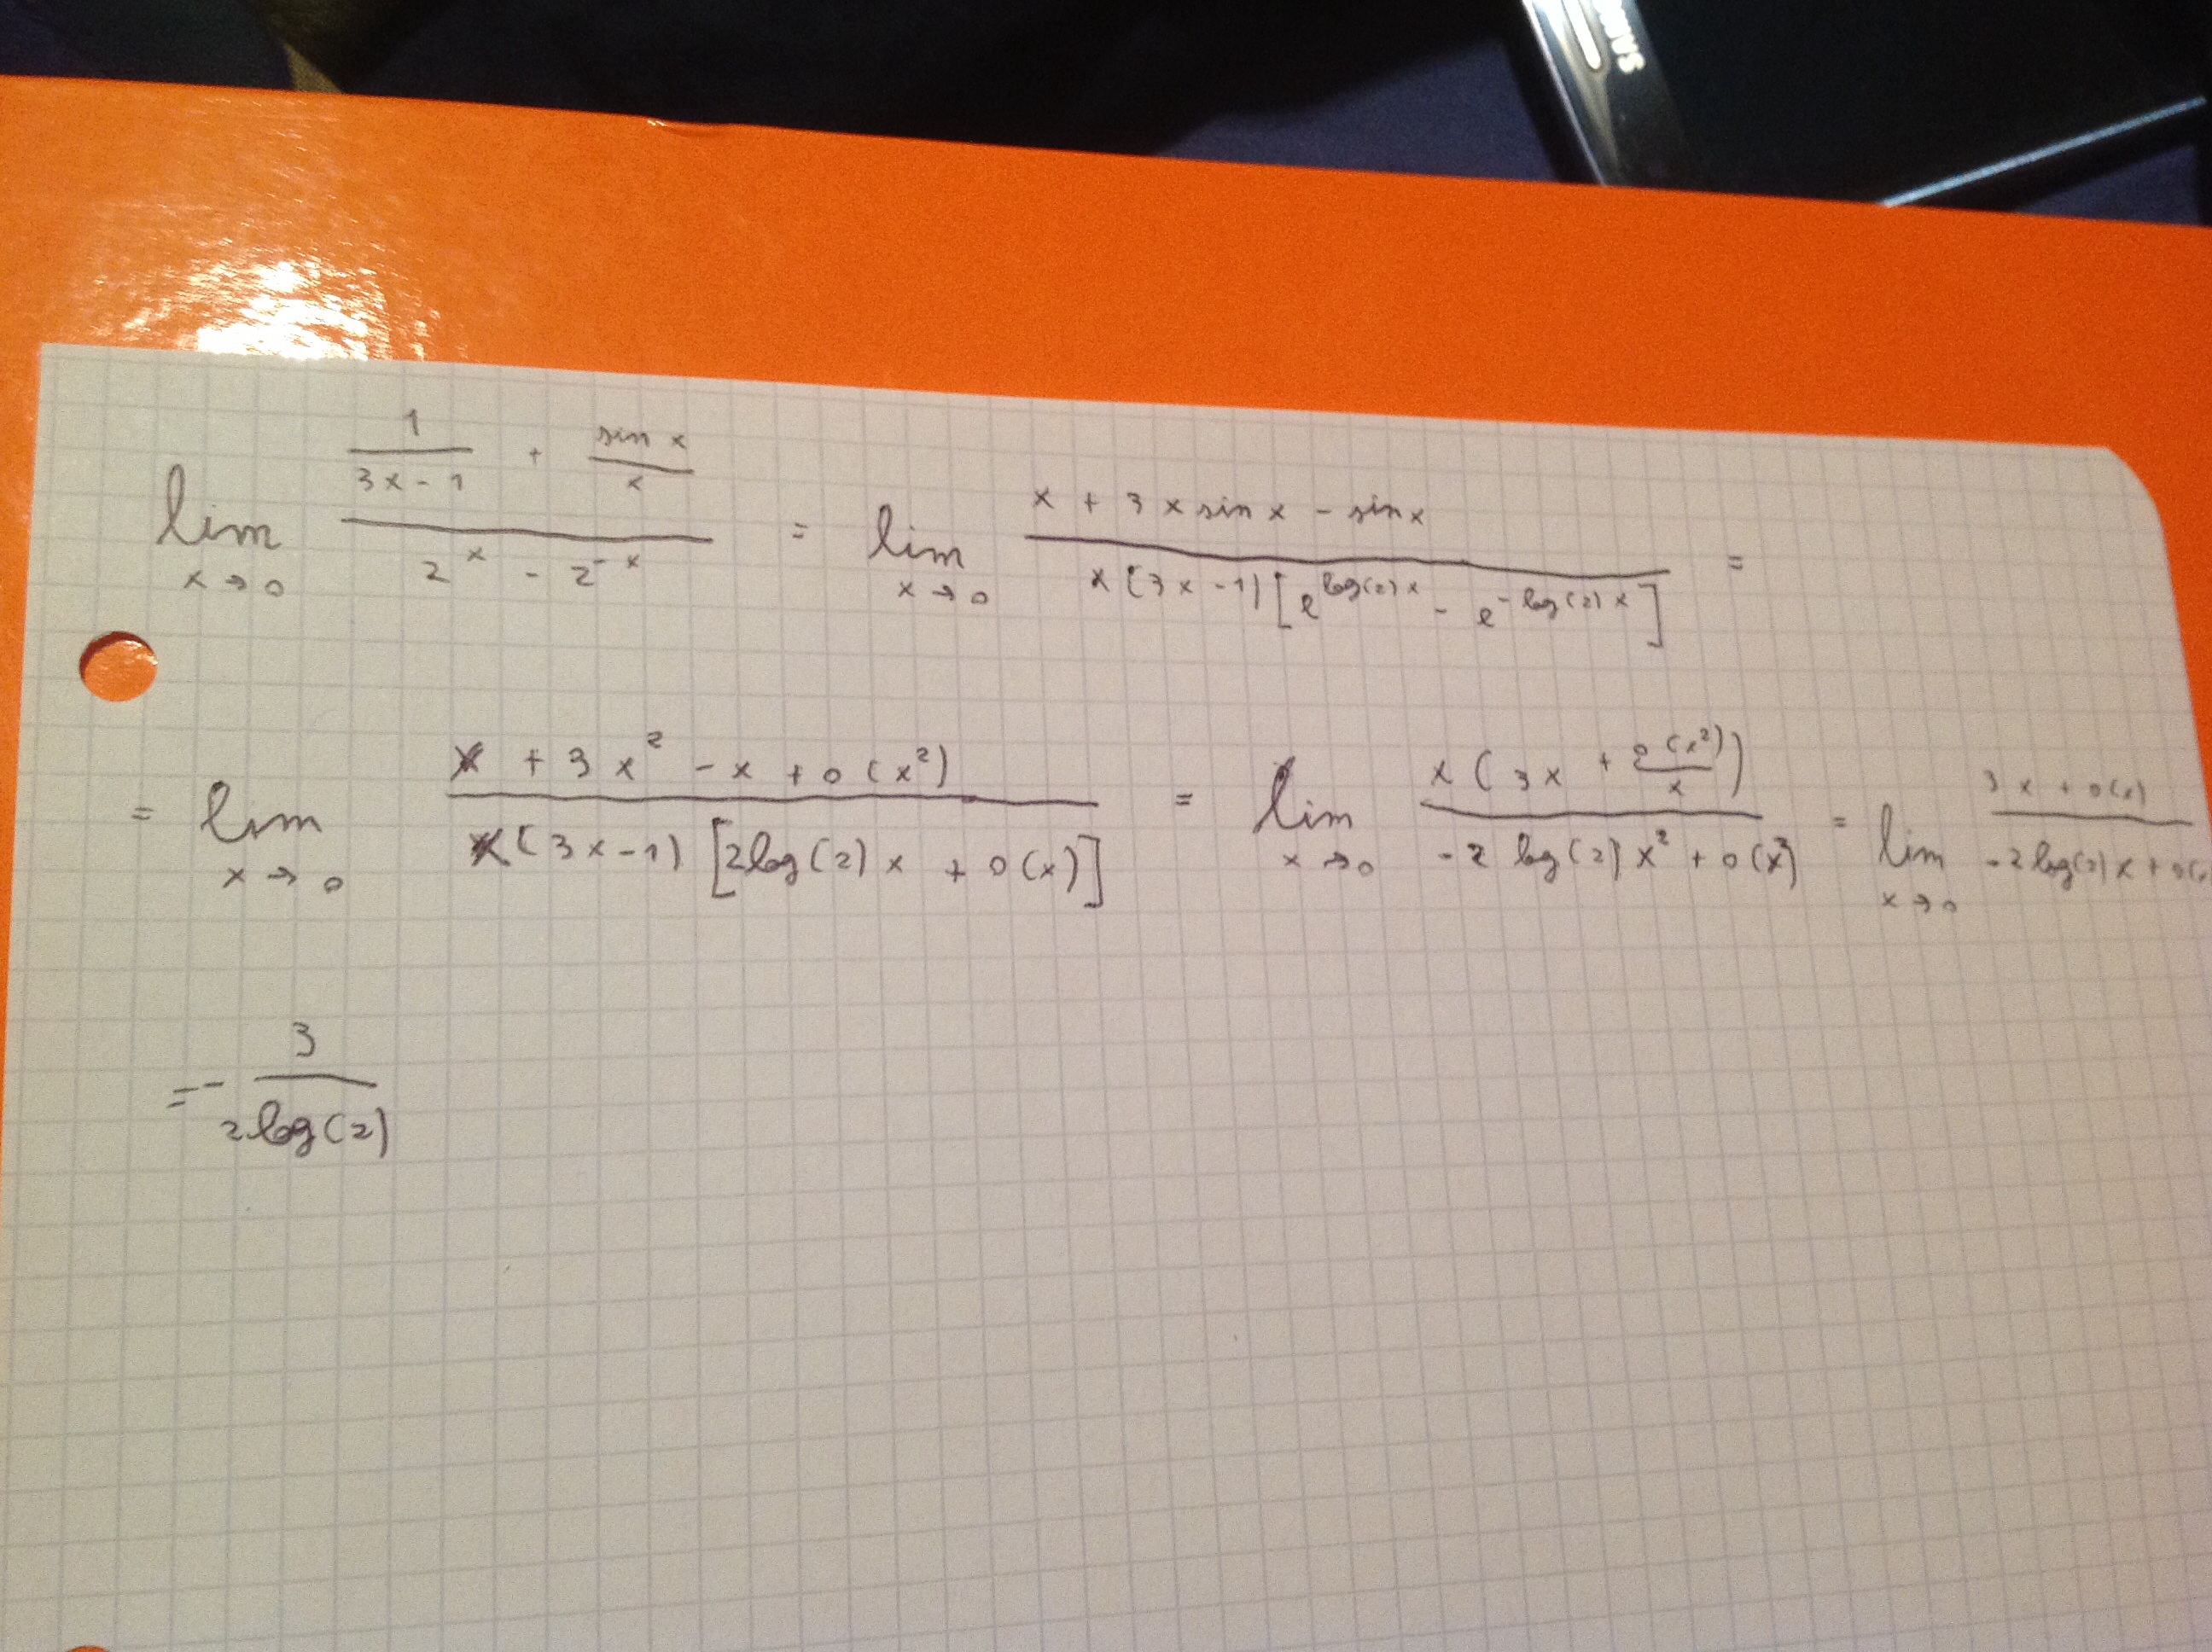 SAMSU
lim x→0 (1/(3x-1) + sin x/x)/(2^x - 2^-x) = lim x→0 (x + 3x sin x - sin x)/(x(3x-1)[e^(log(2)x) - e^(-log(2)x)]) =
= lim x→0 (x + 3x² - x + o(x²))/(x(3x-1)[2log(2)x + o(x)]) = lim x→0 x(3x + o(x²)/x)/(-2 log(2)x² + o(x²)) = lim x→0 (3x + o(x))/(-2log(2)x + o(x
= - 3/(2log(2))